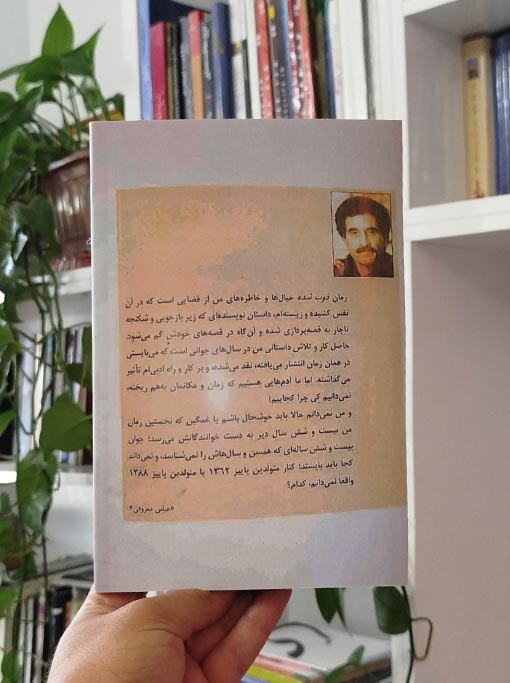 رمان ذوب شده خیال‌ها و خاطره‌های من از فضایی است که در آن
نفس کشیده و زیسته‌ام، داستان نویسنده‌ای که زیر بازجویی و شکنجه
ناچار به قصه‌پردازی شده و آن‌گاه در قصه‌های خودش گم می‌شود.
حاصل کار و تلاش داستانی من در سال‌های جوانی است که می‌بایستی
در همان زمان انتشار می‌یافته، نقد می‌شده، و بر کار و راه ادبی‌ام تأثیر
می‌گذاشته. اما ما آدم‌هایی هستیم که زمان و مکانمان به‌هم ریخته،
نمی‌دانیم کی چرا کجاییم!
و من نمی‌دانم حالا باید خوشحال باشم یا غمگین که نخستین رمان
من بیست و شش سال دیر به دست خوانندگانش می‌رسد؛ جوان
بیست و شش ساله‌ای که همسن و سال‌هاش را نمی‌شناسد، و نمی‌داند
کجا باید بایستد؛ کنار متولدین پاییز ۱۳۶۲ یا متولدین پاییز ۱۳۸۸
واقعاً نمی‌دانم، کدام؟
«عباس معروفی»